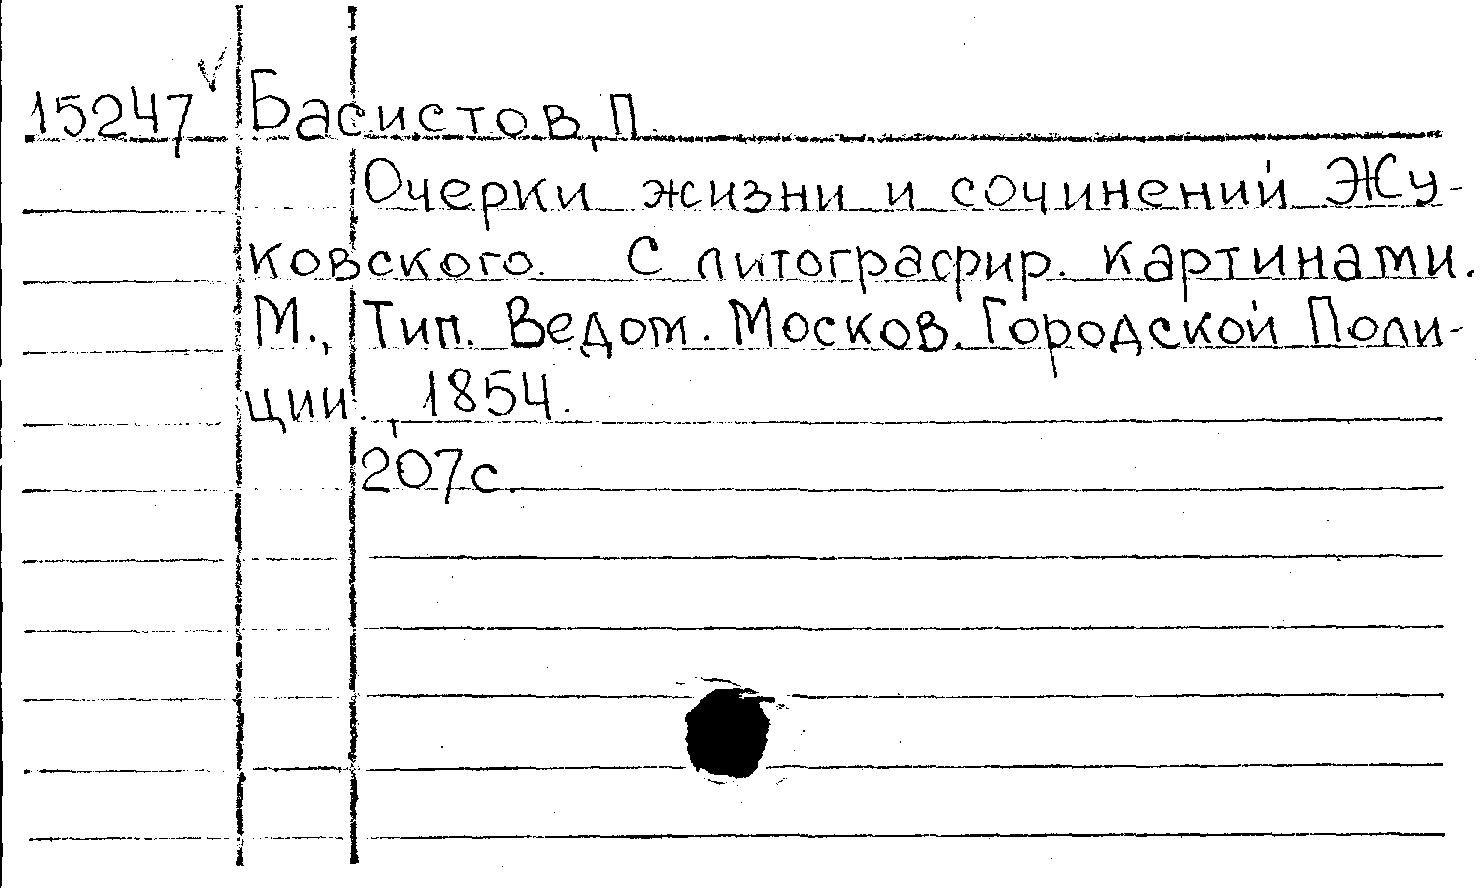 15247 Басистов, П.
Очерки жизни и сочинений Жу-
ковского. С литографир. картинами.
М., Тип. Ведом. Москов. Городской Поли-
ции., 1854.
207с.